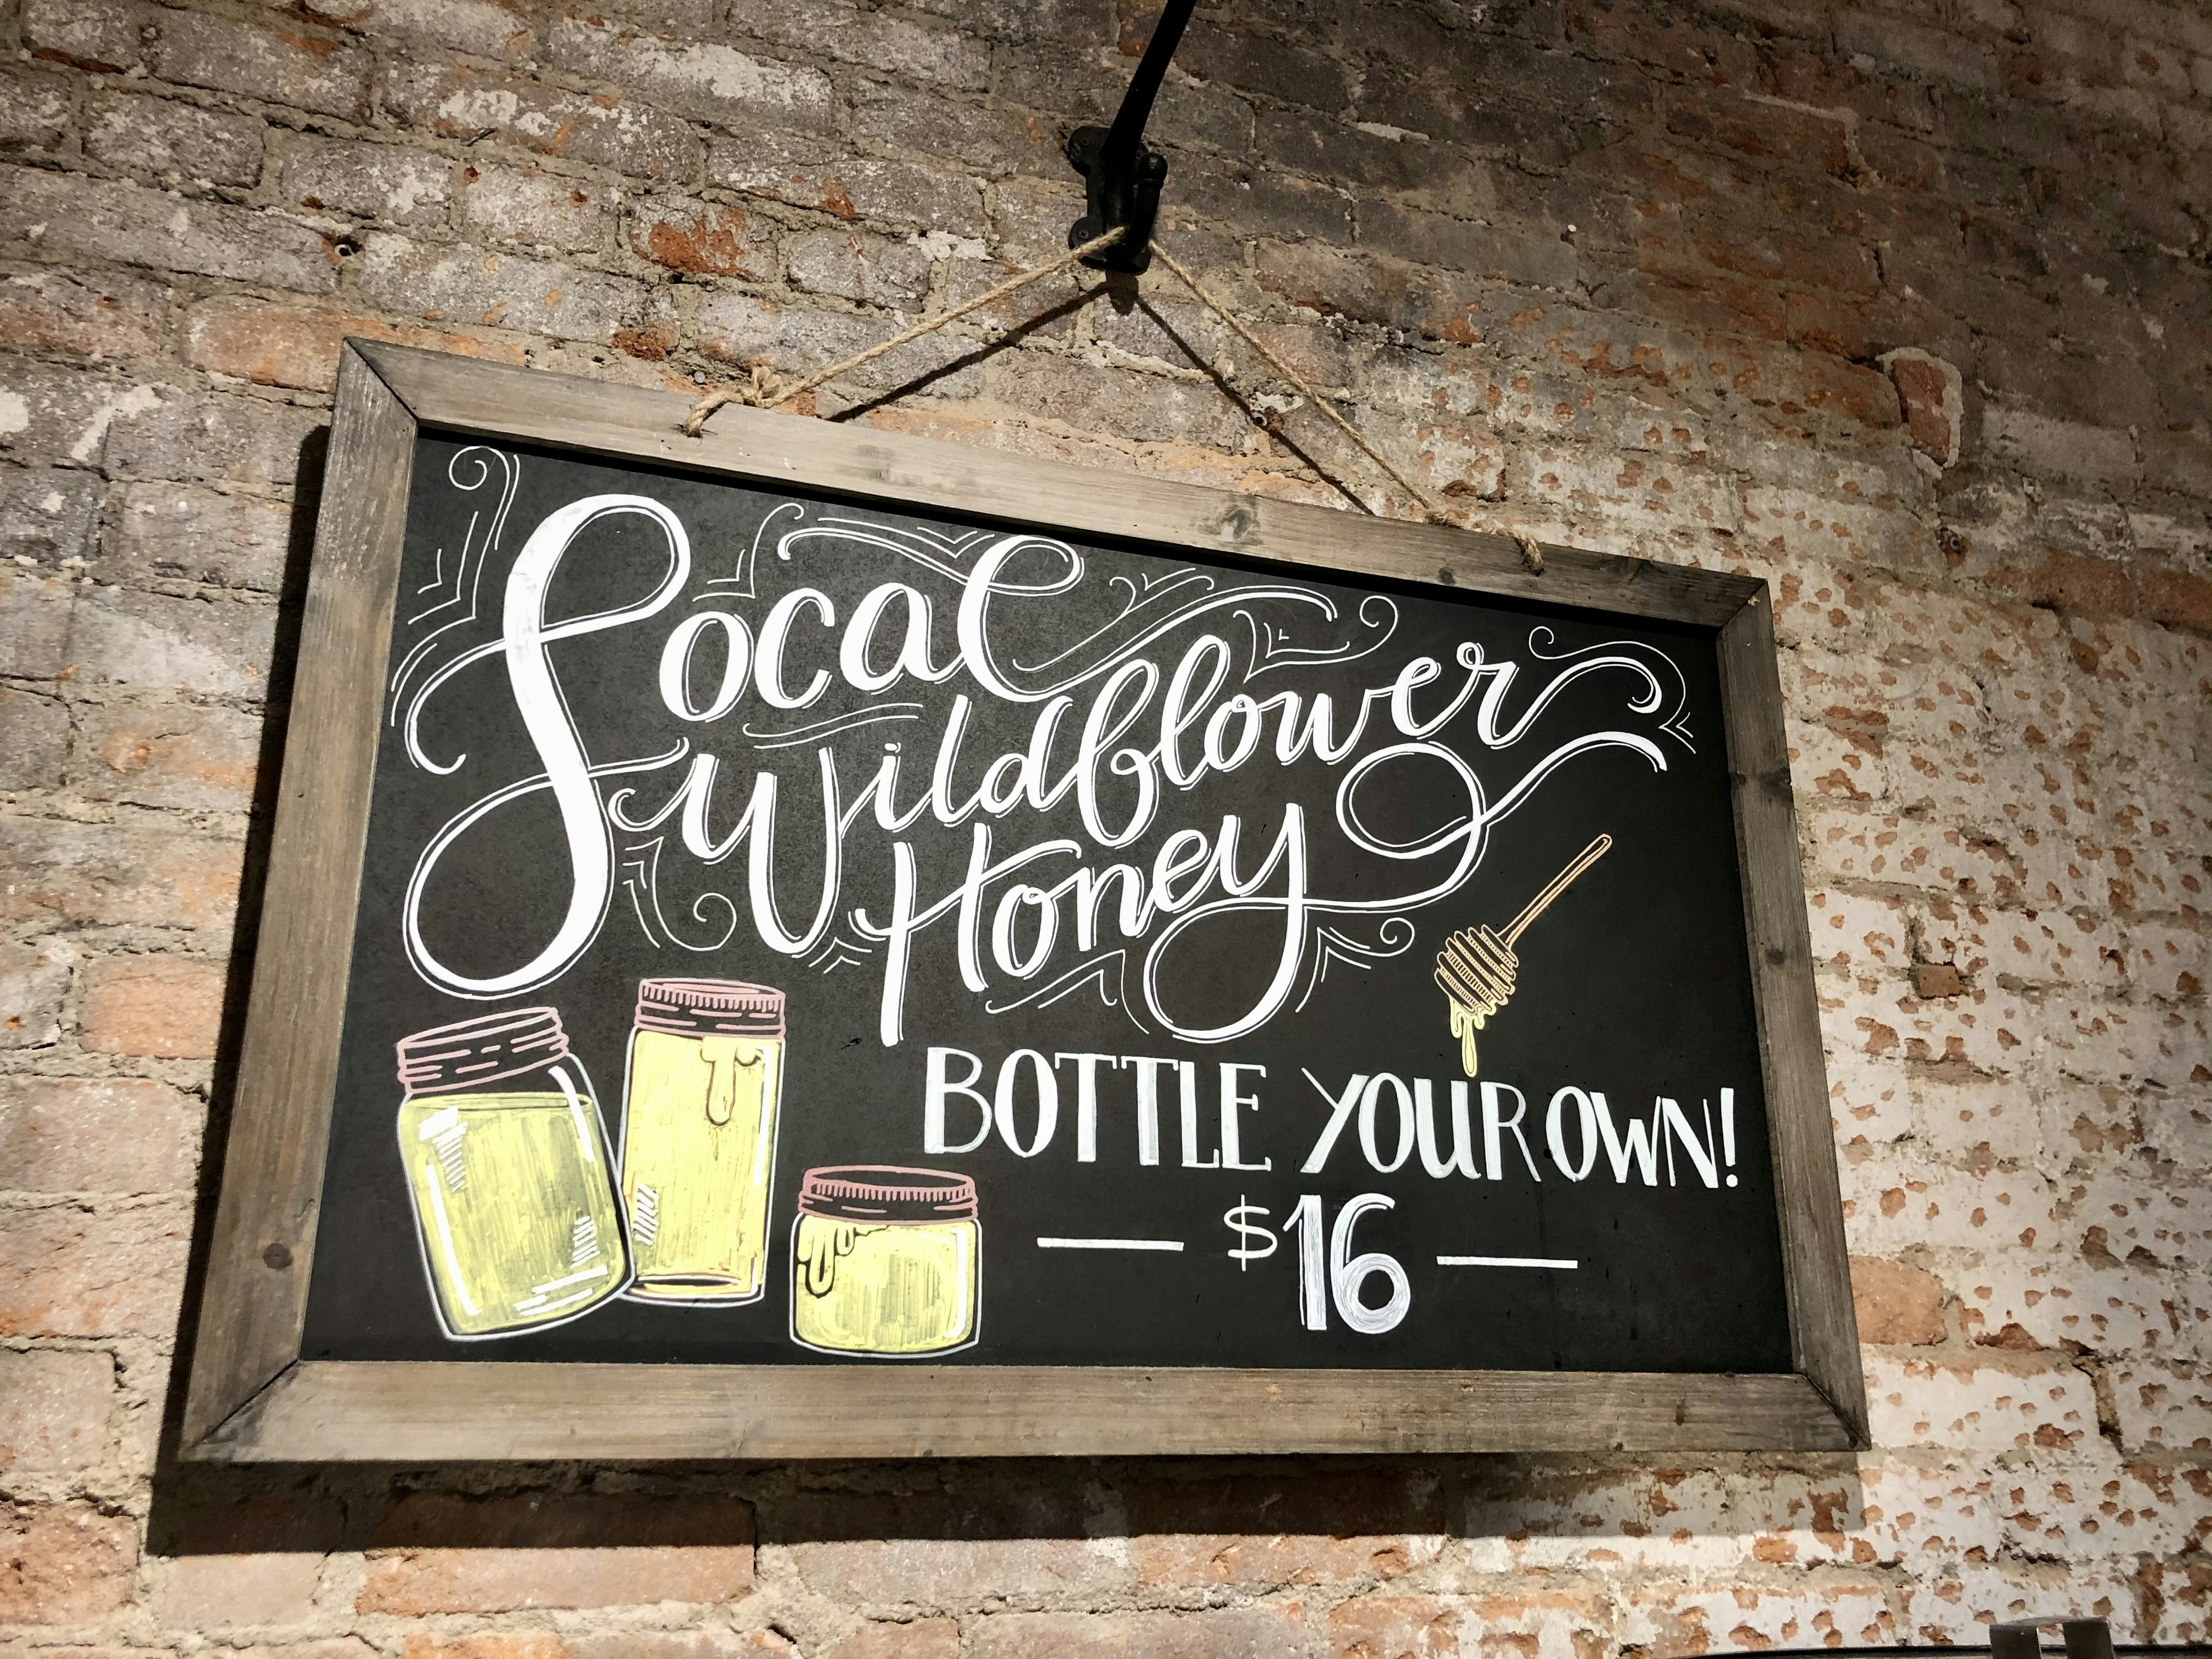 Local
Wildflower
Honey
BOTTLE YOUR OWN!
$16